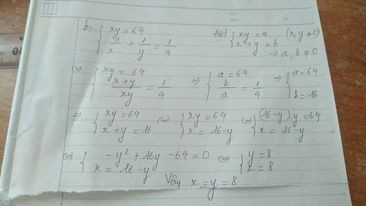 b, { xy = 64
1/x + 1/y = 1/4
Đặt { xy = a (x, y ≠ 0)
x + y = b
→ a, b ≠ 0
⇔ { xy = 64
(x+y)/xy = 1/4
⇒ { a = 64
b/a = 1/4
⇒ { a = 64
b = 16
⇒ { xy = 64
x + y = 16
⇔ { xy = 64
x = 16 - y
⇔ { (16 - y) . y = 64
x = 16 - y
⇔ { -y² + 16y - 64 = 0
x = 16 - y
⇔ { y = 8
x = 8
Vậy x = y = 8